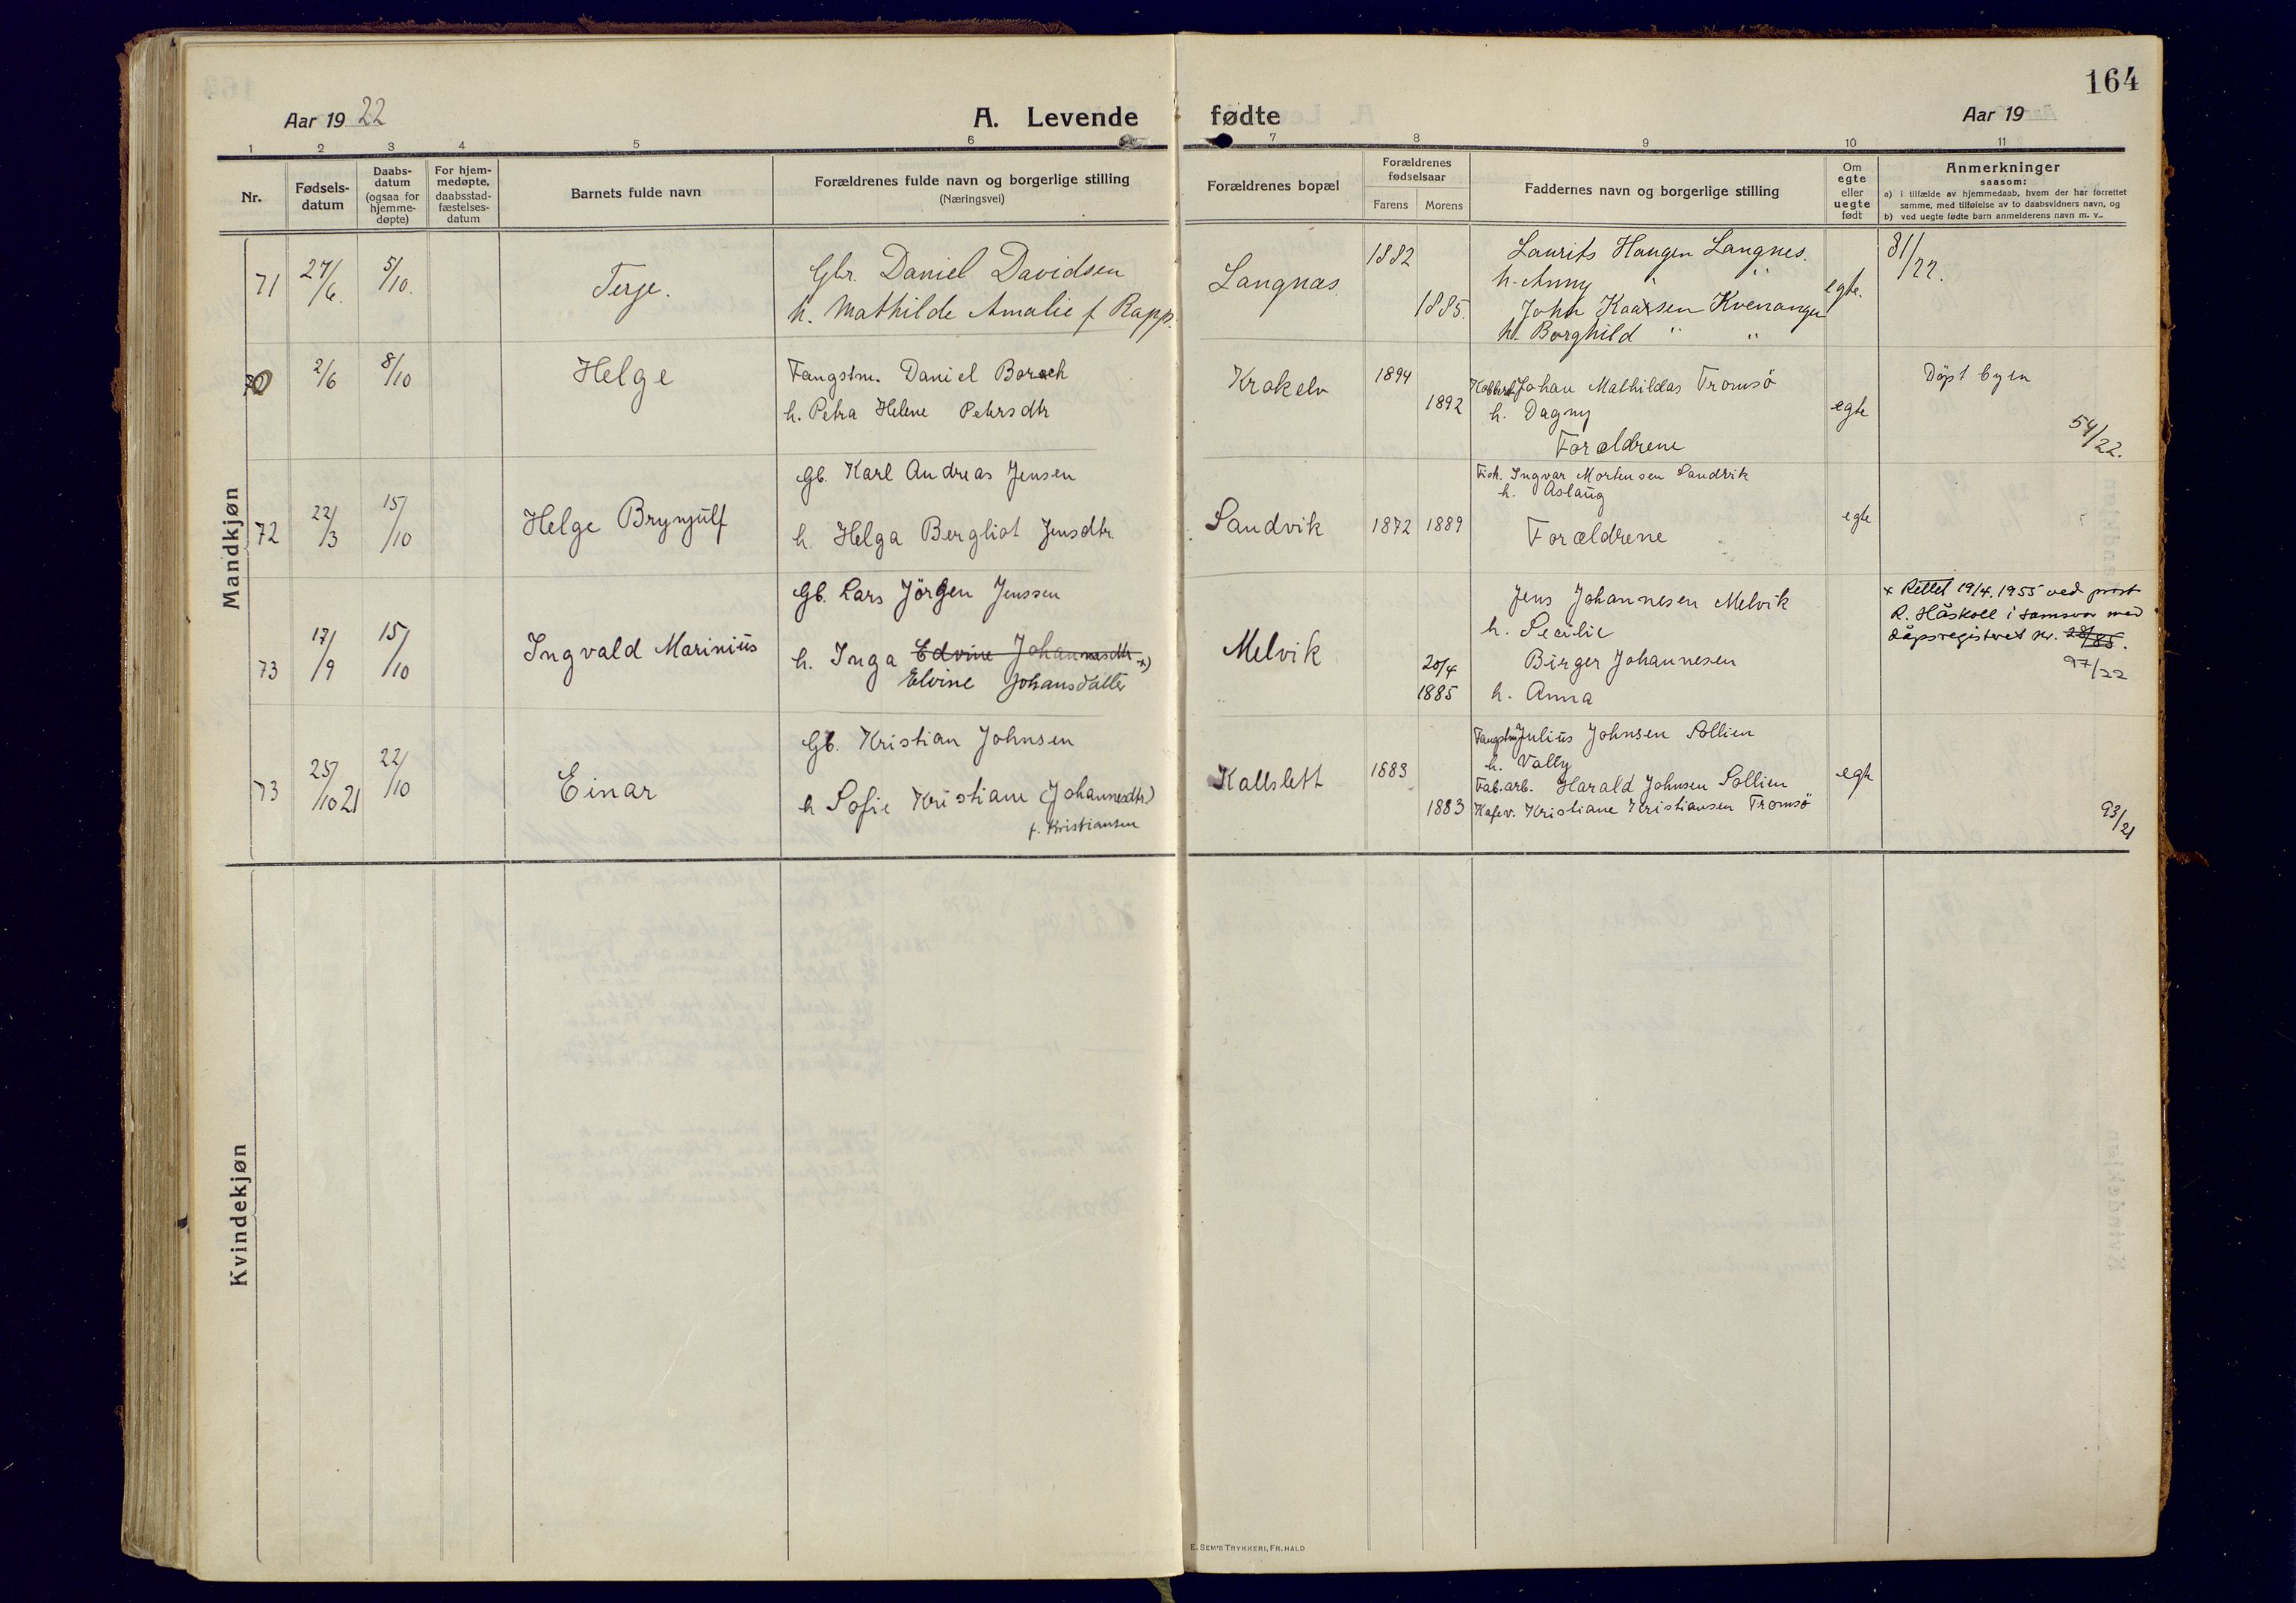 164
Aar 1922
A. Levende fødte
Aar 19
1 2 3 4 5 6 7 8 9 10 11
Nr.
Fødsels-
datum
Daabs-
datum
(ogsaa for
hjemme-
døpte)
For hjem-
medøpte,
daabsstad-
fæstelses-
datum
Barnets fulde navn
Forældrenes fulde navn og borgerlige stilling
(Næringsvei)
Forældrenes bopæl
Forældrenes
fødselsaar
Farens Morens
Faddernes navn og borgerlige stilling
Om
egte
eller
uegte
født
Anmerkninger
saasom:
a) i tilfælde av hjemmedaab, hvem der har forrettet
samme, med tilføielse av to daabsvidners navn, og
b) ved uegte fødte barn anmelderens navn m. v..
Mandkjøn
71 27/6. 5/10. Terje.
Gbr. Daniel Davidsen
h. Mathilde Amalie f Rapp.
Langnas.
1882
1885.
Laurits Haugen Langnes.
h. Anny " "
John Kaarsen Kvenangen
h. Borghild " "
egte.
81/22.
70 2/6 8/10 Helge
Fangstm. Daniel Borsch
h. Petra Helene Petersdtr
Krokelv
1894
1892
Johan Mathildas Tromsö
h. Dagny
Forældrene
egte
Döpt byen
54/22.
72 22/3 15/10 Helge Brynjulf
Gb. Karl Andreas Jensen
h. Helga Bergliot Jensdtr
Sandvik
1872 1889
Fisk. Ingvar Mortensen Sandvik
h. Aslaug
Forældrene
egte
73 17/9 15/10 Ingvald Marinius
Gb. Lars Jörgen Jenssen
h. Inga Edvine Johannesdtr x)
Elvine Johansdatter
Melvik
20/4
1885
Jens Johannesen Melvik
h. Secilie
Birger Johannesen
h. Anna
x Rettet 19/4.1955 ved prost
R. Håskoll i samsvar med
dåpsregistret nr. 28/85.
97/22
73 25/10 21 22/10 Einar
Gb. Kristian Johnsen
h Sofie Kristiane (Johannesdtr)
f. Kristiansen
Kallslett
1883
1883
Fangstm Julius Johnsen Sollien
h. Vally
Fab.arb. Harald Johnsen Sollien
Kafev. Kristiane Kristiansen Tromsö
egte
93/21
Kvindekjøn
E. SEM'S TRYKKERI, FR.HALD